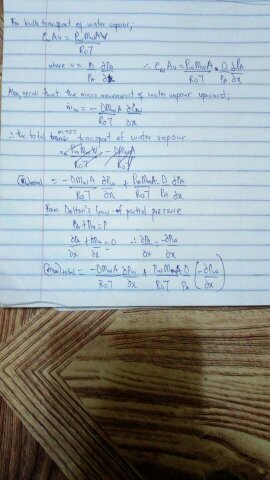 For bulk transport of water vapour;
ρw Av = Pw Mw A v / R0T
where v = D/PA ∂PA/∂x ∴ ρw Av = Pw Mw A / R0T · D/PA ∂PA/∂x
Also, recall that the mass movement of water vapour upward;
ṁw = - D Mw A / R0T ∂Pw/∂x
∴ the total mass transport of water vapour
Pw Mw A / R0T - D Mw A / R0T
(ṁw)total = - D Mw A / R0T ∂Pw/∂x + Pw Mw A / R0T D/PA ∂PA/∂x
From Dalton's law of partial pressure
PA + Pw = P
∂PA/∂x + ∂Pw/∂x = 0 ∴ ∂PA/∂x = -∂Pw/∂x
(ṁw)total = - D Mw A / R0T ∂Pw/∂x + Pw Mw A / R0T D/PA (-∂Pw/∂x)